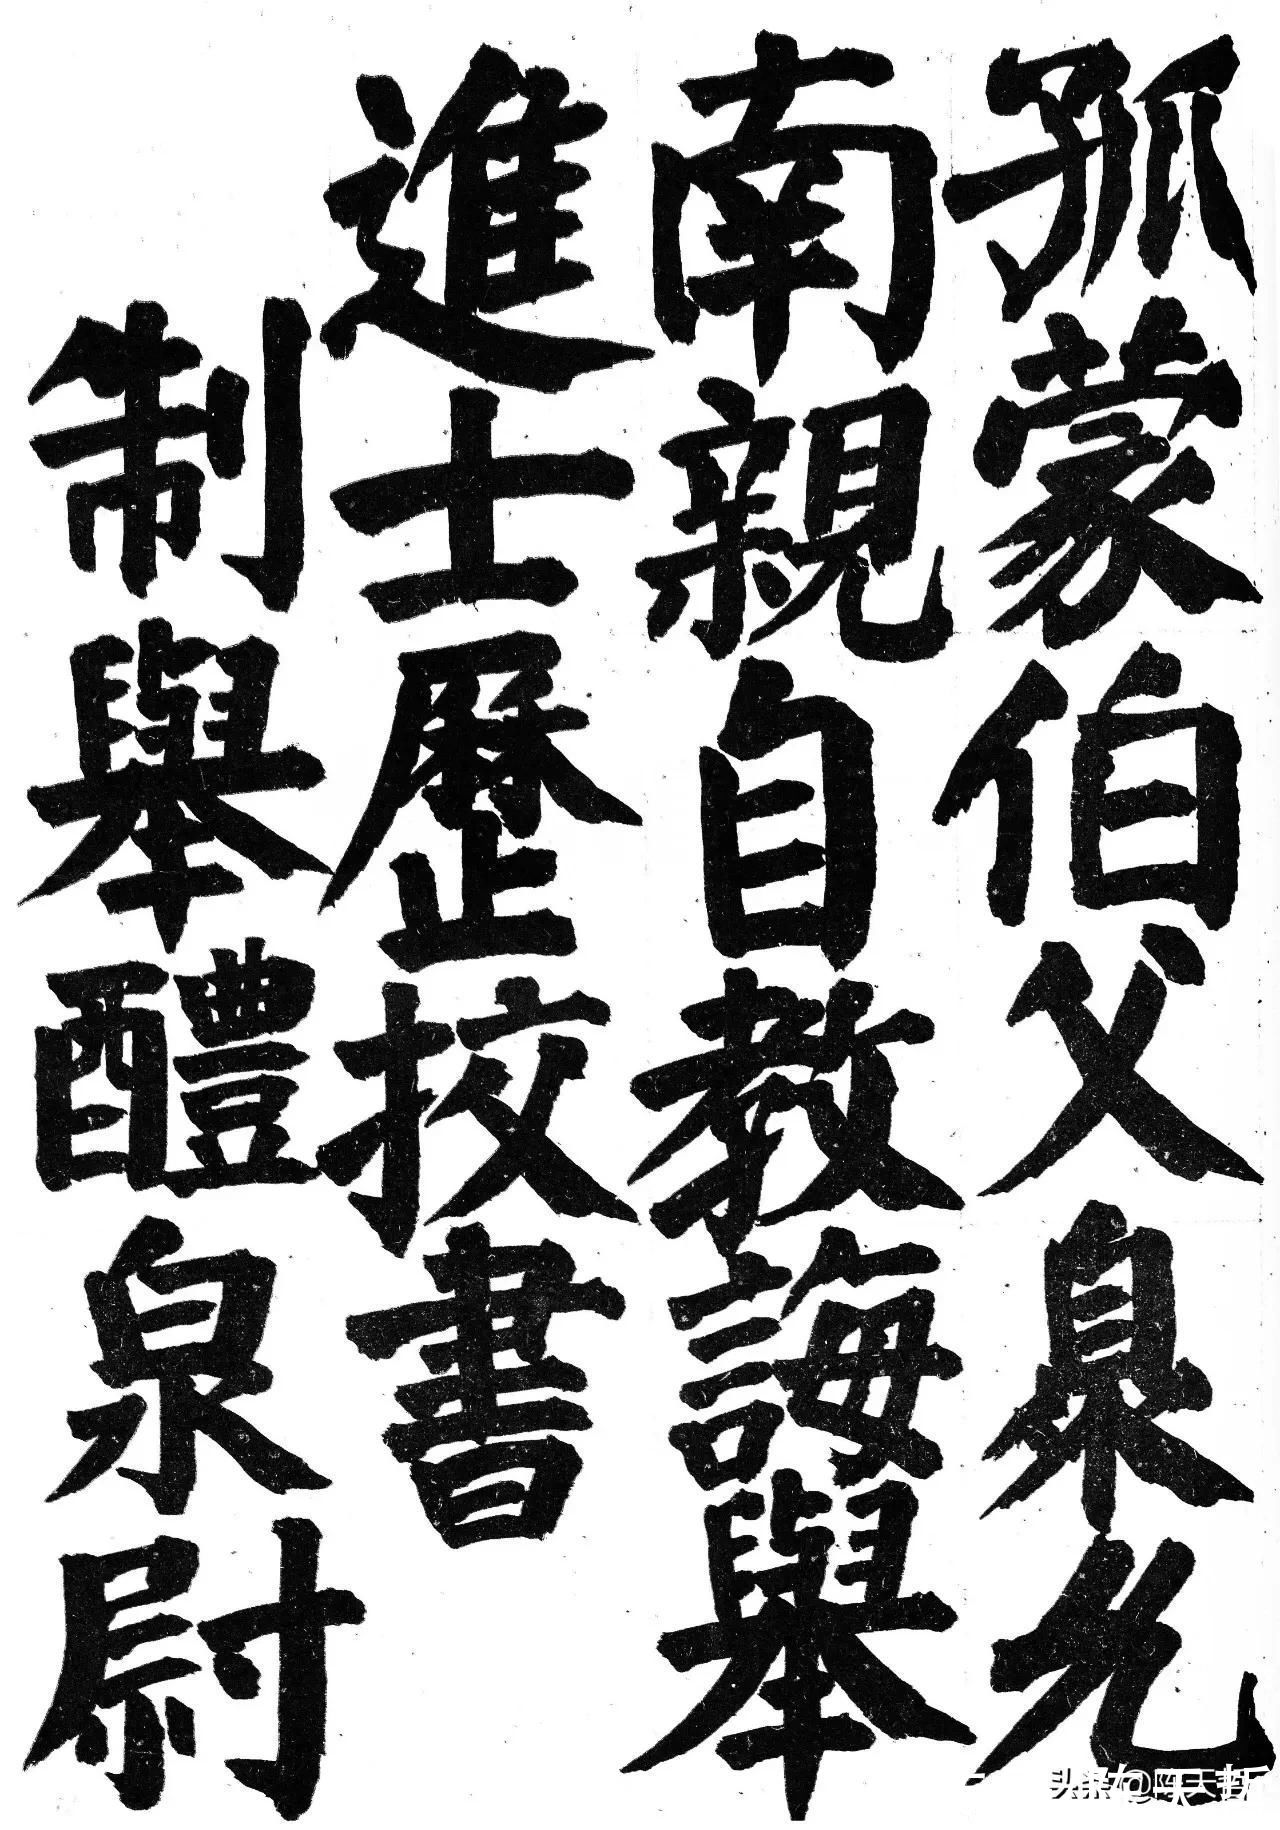 孤蒙伯父臮允
南親自教誨舉
進士歷挍書
制舉醴泉尉
头条@陈天